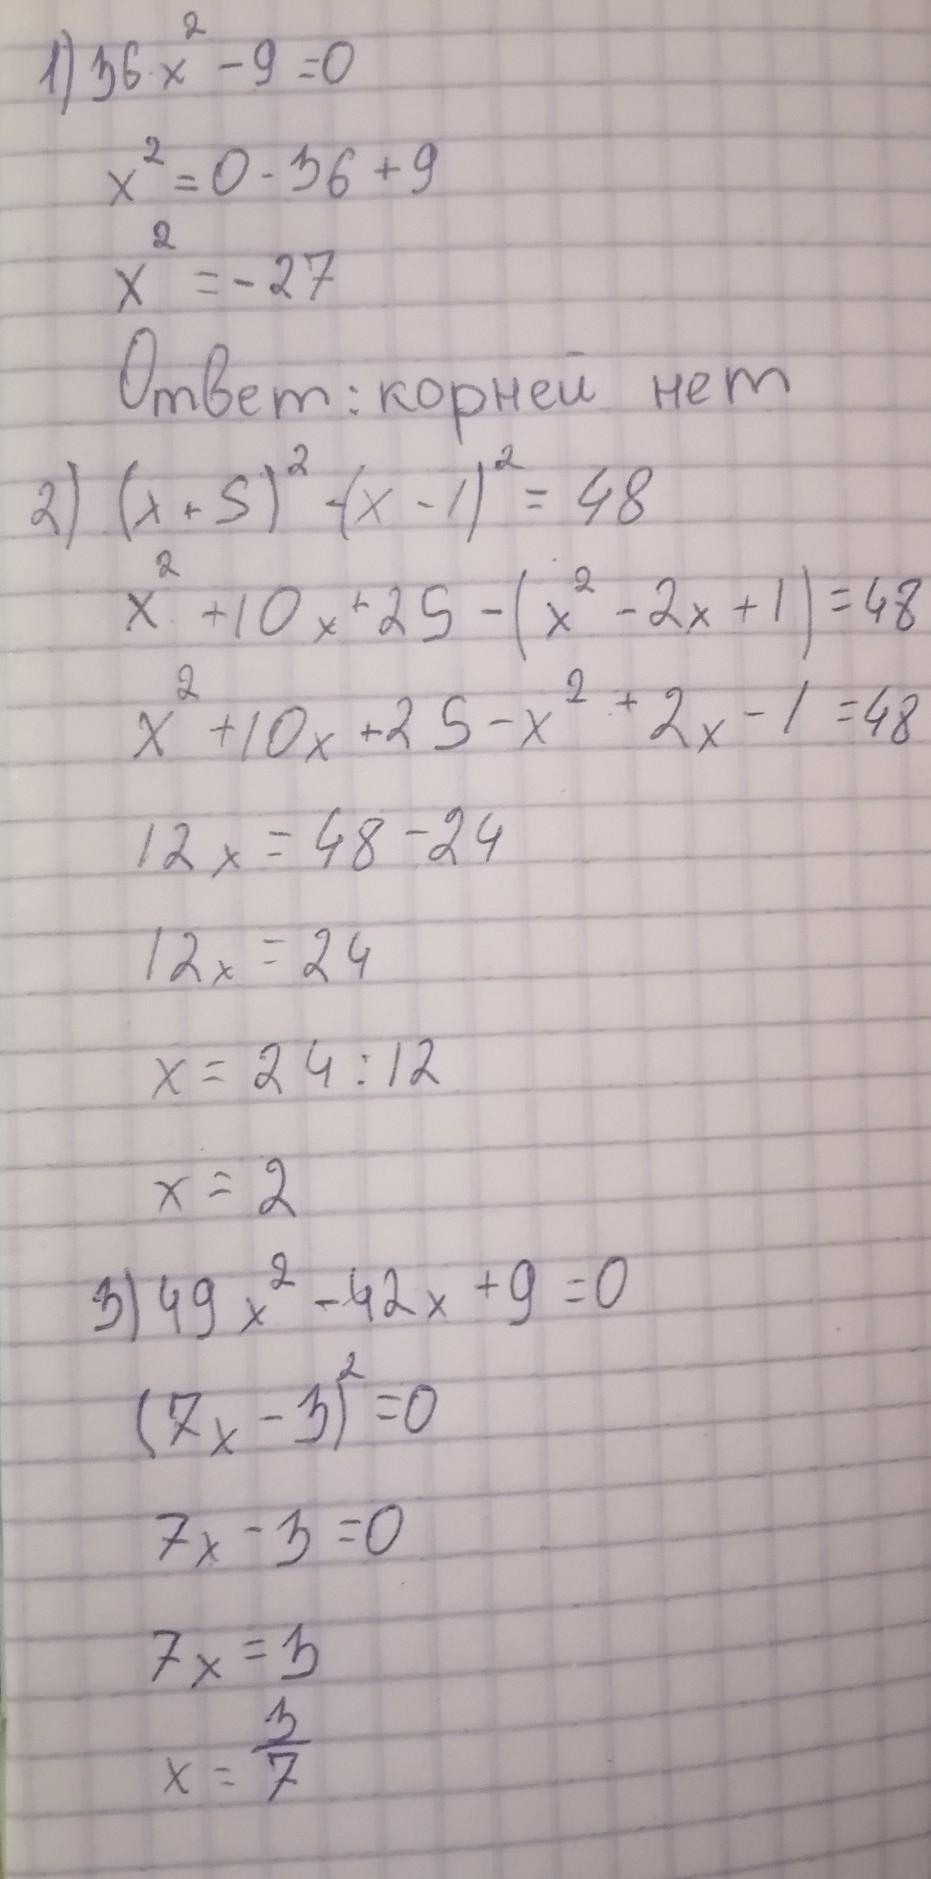 1) 36x² - 9 = 0
x² = 0 - 36 + 9
x² = - 27
Ответ: корней нет
2) (x + 5)² - (x - 1)² = 48
x² + 10x + 25 - (x² - 2x + 1) = 48
x² + 10x + 25 - x² + 2x - 1 = 48
12x = 48 - 24
12x = 24
x = 24 : 12
x = 2
3) 49x² - 42x + 9 = 0
(7x - 3)² = 0
7x - 3 = 0
7x = 3
x = 3/7